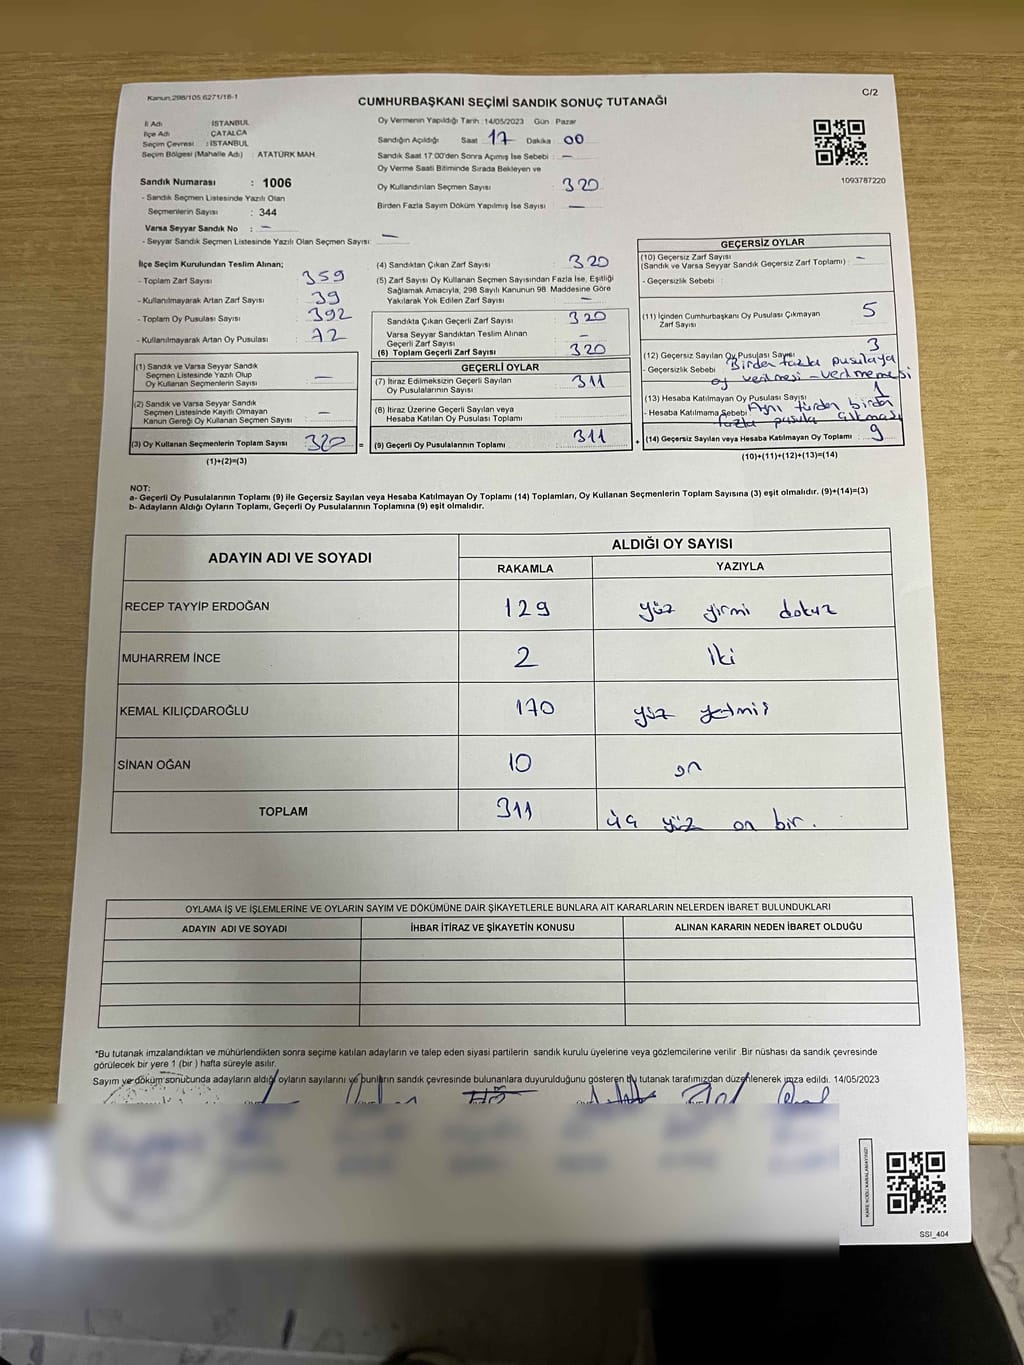 Kanun:298/105,6271/18-1
C/2
CUMHURBAŞKANI SEÇİMİ SANDIK SONUÇ TUTANAĞI
İl Adı : İSTANBUL
İlçe Adı : ÇATALCA
Seçim Çevresi : İSTANBUL
Seçim Bölgesi (Mahalle Adı) : ATATÜRK MAH.
Sandık Numarası : 1006
- Sandık Seçmen Listesinde Yazılı Olan
Seçmenlerin Sayısı : 344
Varsa Seyyar Sandık No : -
- Seyyar Sandık Seçmen Listesinde Yazılı Olan Seçmen Sayısı: -
Oy Vermenin Yapıldığı Tarih :14/05/2023 Gün : Pazar
Sandığın Açıldığı Saat 17 Dakika 00
Sandık Saat 17:00'den Sonra Açılmış İse Sebebi : -
Oy Verme Saati Bitiminde Sırada Bekleyen ve
Oy Kullandırılan Seçmen Sayısı : 320
Birden Fazla Sayım Döküm Yapılmış İse Sayısı : -
1093787220
İlçe Seçim Kurulundan Teslim Alınan;
- Toplam Zarf Sayısı : 359
- Kullanılmayarak Artan Zarf Sayısı : 39
- Toplam Oy Pusulası Sayısı : 392
- Kullanılmayarak Artan Oy Pusulası : 72
(1) Sandık ve Varsa Seyyar Sandık
Seçmen Listesinde Yazılı Olup
Oy Kullanan Seçmenlerin Sayısı : -
(2) Sandık ve Varsa Seyyar Sandık
Seçmen Listesinde Kayıtlı Olmayan
Kanun Gereği Oy Kullanan Seçmen Sayısı : -
(3) Oy Kullanan Seçmenlerin Toplam Sayısı : 320 =
(1)+(2)=(3)
(4) Sandıktan Çıkan Zarf Sayısı : 320
(5) Zarf Sayısı Oy Kullanan Seçmen Sayısından Fazla İse, Eşitliği
Sağlamak Amacıyla, 298 Sayılı Kanunun 98. Maddesine Göre
Yakılarak Yok Edilen Zarf Sayısı : -
Sandıkta Çıkan Geçerli Zarf Sayısı : 320
Varsa Seyyar Sandıktan Teslim Alınan
Geçerli Zarf Sayısı : -
(6) Toplam Geçerli Zarf Sayısı : 320
GEÇERLİ OYLAR
(7) İtiraz Edilmeksizin Geçerli Sayılan
Oy Pusulalarının Sayısı : 311
(8) İtiraz Üzerine Geçerli Sayılan veya
Hesaba Katılan Oy Pusulası Toplamı
(9) Geçerli Oy Pusulalarının Toplamı : 311 +
GEÇERSİZ OYLAR
(10) Geçersiz Zarf Sayısı
(Sandık ve Varsa Seyyar Sandık Geçersiz Zarf Toplamı) : -
- Geçersizlik Sebebi :
(11) İçinden Cumhurbaşkanı Oy Pusulası Çıkmayan
Zarf Sayısı : 5
(12) Geçersiz Sayılan Oy Pusulası Sayısı : 3
- Geçersizlik Sebebi : Birden fazla pusulaya
oy verilmesi - verilmemesi
(13) Hesaba Katılmayan Oy Pusulası Sayısı : 1
- Hesaba Katılmama Sebebi : Aynı türden birden
fazla pusula çıkması
(14) Geçersiz Sayılan veya Hesaba Katılmayan Oy Toplamı : 9
(10)+(11)+(12)+(13)=(14)
NOT:
a- Geçerli Oy Pusulalarının Toplamı (9) ile Geçersiz Sayılan veya Hesaba Katılmayan Oy Toplamı (14) Toplamları, Oy Kullanan Seçmenlerin Toplam Sayısına (3) eşit olmalıdır. (9)+(14)=(3)
b- Adayların Aldığı Oyların Toplamı, Geçerli Oy Pusulalarının Toplamına (9) eşit olmalıdır.
ADAYIN ADI VE SOYADI ALDIĞI OY SAYISI
RAKAMLA YAZIYLA
RECEP TAYYİP ERDOĞAN 129 yüz yirmi dokuz
MUHARREM İNCE 2 iki
KEMAL KILIÇDAROĞLU 170 yüz yetmiş
SİNAN OĞAN 10 on
TOPLAM 311 üç yüz on bir.
OYLAMA İŞ VE İŞLEMLERİNE VE OYLARIN SAYIM VE DÖKÜMÜNE DAİR ŞİKAYETLERLE BUNLARA AİT KARARLARIN NELERDEN İBARET BULUNDUKLARI
ADAYIN ADI VE SOYADI İHBAR İTİRAZ VE ŞİKAYETİN KONUSU ALINAN KARARIN NEDEN İBARET OLDUĞU
*Bu tutanak imzalandıktan ve mühürlendikten sonra seçime katılan adayların ve talep eden siyasi partilerin sandık kurulu üyelerine veya gözlemcilerine verilir. Bir nüshası da sandık çevresinde
görülecek bir yere 1 (bir) hafta süreyle asılır.
Sayım ve döküm sonucunda adayların aldığı oyların sayılarını ve bunların sandık çevresinde bulunanlara duyurulduğunu gösteren bu tutanak tarafımızdan düzenlenerek imza edildi. 14/05/2023
SSI_404